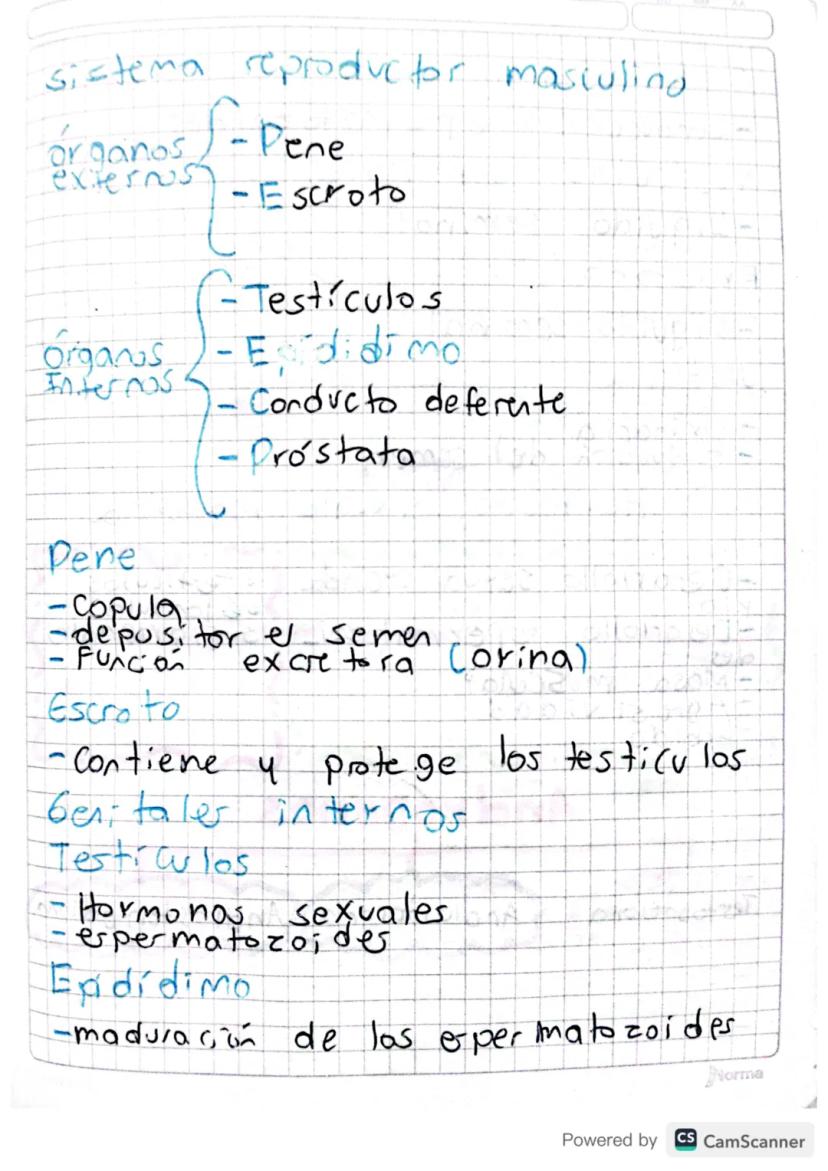 sistema reproductor masculino
órganos
externos
- Pene
- Escroto
órganos
Internos
- Testículos
- Epídidimo
- Conducto deferente
- Próstata
Pene
- Copula
- depositor el semen
- Función excretora (orina)
Escroto
- Contiene y protege los testiculos
Genitales internos
Testículos
- Hormonas sexuales
- espermatozoides
Epidídimo
- maduración de los espermatozoides
Norma
Powered by CS CamScanner